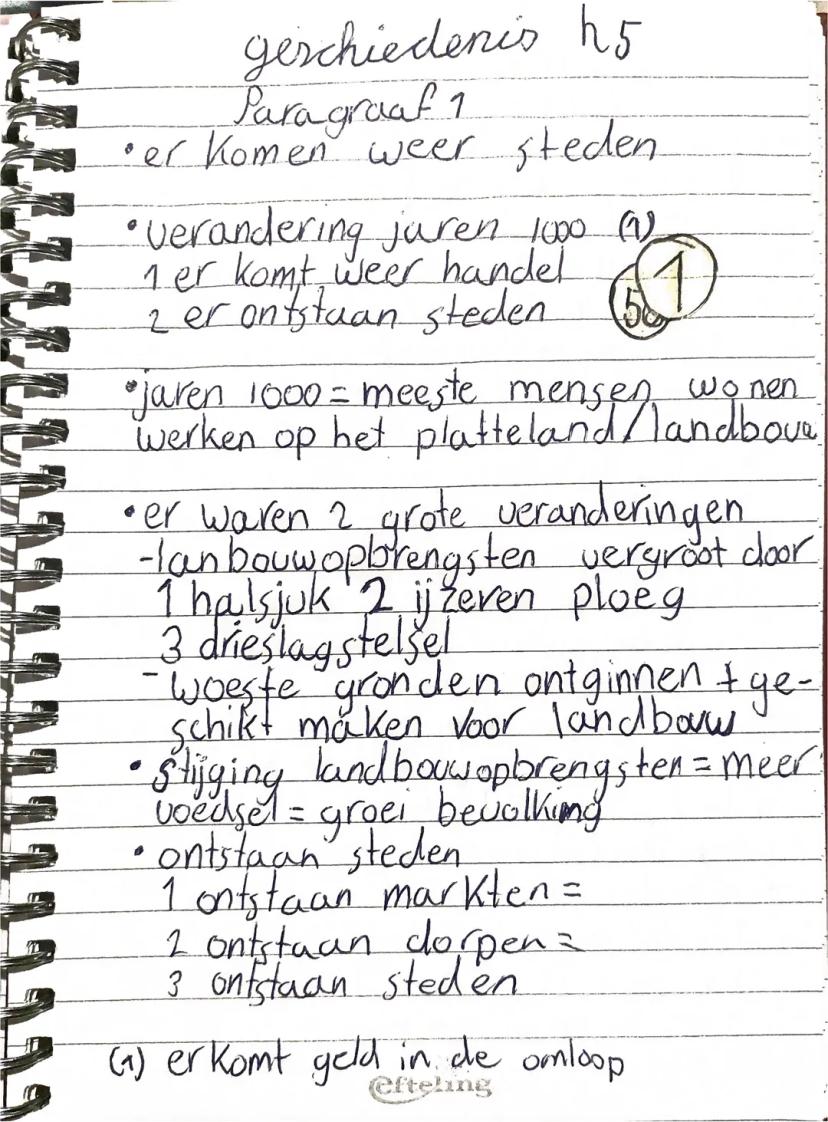 geschiedenis h5
Paragraaf 1
• er komen weer steden
• verandering jaren 1000 (1)
1 er komt weer handel
2 er ontstaan steden
50 1
• jaren 1000 = meeste mensen wonen
werken op het platteland/landbouw
• er waren 2 grote veranderingen
- lanbouwopbrengsten vergroot door
1 halsjuk 2 ijzeren ploeg
3 drieslagstelsel
- woeste gronden ontginnen + ge-
schikt maken voor landbouw
• stijging landbouwopbrengsten = meer
voedsel = groei bevolking
• ontstaan steden
1 ontstaan markten =
2 ontstaan dorpen =
3 ontstaan steden
(1) er komt geld in de omloop
efteling